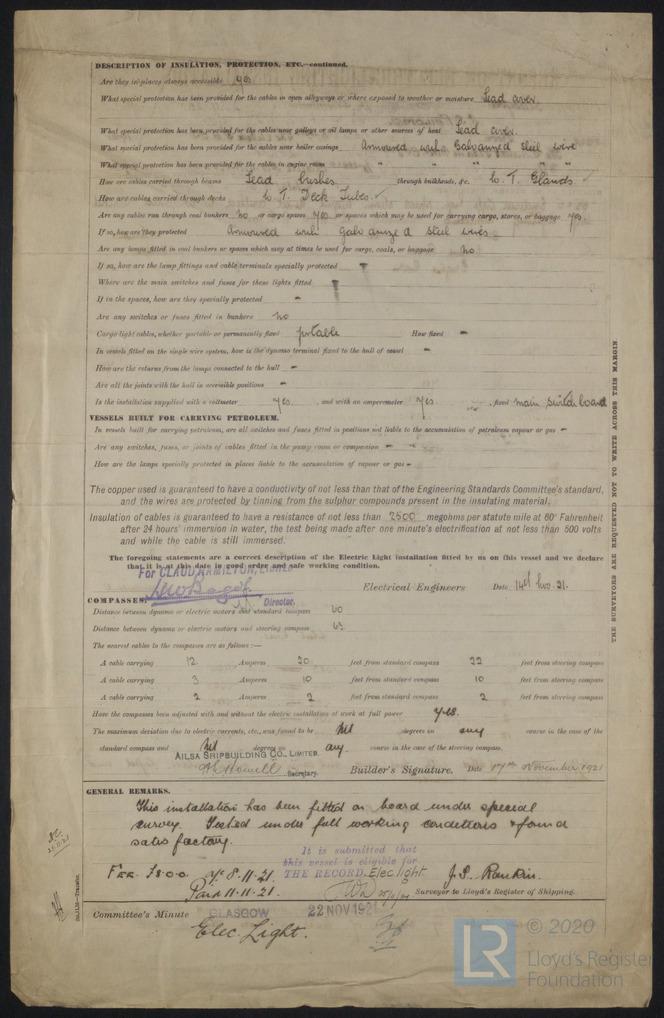 DESCRIPTION OF INSULATION, PROTECTION, ETC.—continued.
Are they in places always accessible yes
What special protection has been provided for the cables in open alleyways or where exposed to weather or moisture Lead cover.
What special protection has been provided for the cables near galleys or oil lamps or other sources of heat Lead cover.
What special protection has been provided for the cables near boiler casings Armoured with Galvanized steel wire
What special protection has been provided for the cables in engine room " " " " "
How are cables carried through beams Lead bushes through bulkheads, &c. W. T. Glands ✓
How are cables carried through decks W. T. Deck Tubes. ✓
Are any cables run through coal bunkers no or cargo spaces yes or spaces which may be used for carrying cargo, stores, or baggage yes.
If so, how are they protected Armoured with galvanized steel wires
Are any lamps fitted in coal bunkers or spaces which may at times be used for cargo, coals, or baggage no
If so, how are the lamp fittings and cable terminals specially protected
Where are the main switches and fuses for these lights fitted
If in the spaces, how are they specially protected -
Are any switches or fuses fitted in bunkers no
Cargo light cables, whether portable or permanently fixed portable How fixed -
In vessels fitted on the single wire system, how is the dynamo terminal fixed to the hull of vessel -
How are the returns from the lamps connected to the hull -
Are all the joints with the hull in accessible positions -
Is the installation supplied with a voltmeter yes. , and with an amperemeter yes. , fixed main switchboard
VESSELS BUILT FOR CARRYING PETROLEUM.
In vessels built for carrying petroleum, are all switches and fuses fitted in positions not liable to the accumulation of petroleum vapour or gas -
Are any switches, fuses, or joints of cables fitted in the pump room or companion -
How are the lamps specially protected in places liable to the accumulation of vapour or gas -
The copper used is guaranteed to have a conductivity of not less than that of the Engineering Standards Committee's standard,
and the wires are protected by tinning from the sulphur compounds present in the insulating material.
Insulation of cables is guaranteed to have a resistance of not less than 2500 megohms per statute mile at 60° Fahrenheit
after 24 hours' immersion in water, the test being made after one minute's electrification at not less than 500 volts
and while the cable is still immersed.
The foregoing statements are a correct description of the Electric Light installation fitted by us on this vessel and we declare
that it is at this date in good order and safe working condition.
For CLAUD HAMILTON, LIMITED
Electrical Engineers Date 14th Nov. 21.
Director.
COMPASSES.
Distance between dynamo or electric motors and standard compass 60
Distance between dynamo or electric motors and steering compass 63
The nearest cables to the compasses are as follows:—
A cable carrying 12 Amperes 20 feet from standard compass 22 feet from steering compass
A cable carrying 3 Amperes 10 feet from standard compass 10 feet from steering compass
A cable carrying 2 Amperes 2 feet from standard compass 2 feet from steering compass
Have the compasses been adjusted with and without the electric installation at work at full power yes.
The maximum deviation due to electric currents, etc., was found to be Nil degrees on any course in the case of the
standard compass and Nil degrees on any. course in the case of the steering compass.
AILSA SHIPBUILDING CO., LIMITED.
Secretary. Builder's Signature. Date 17th November 1921
GENERAL REMARKS.
This installation has been fitted on board under special
survey. Tested under full working conditions & found
satisfactory.
It is submitted that
this vessel is eligible for
THE RECORD. Elec light
Fee 18.0.0 8.11.21.
Paid 11.11.21.
J.S. Rankin.
Surveyor to Lloyd's Register of Shipping.
Committee's Minute GLASGOW 22 NOV 1921
Elec. Light.
THE SURVEYORS ARE REQUESTED NOT TO WRITE ACROSS THIS MARGIN
© 2020
LR
Lloyd's Register
Foundation